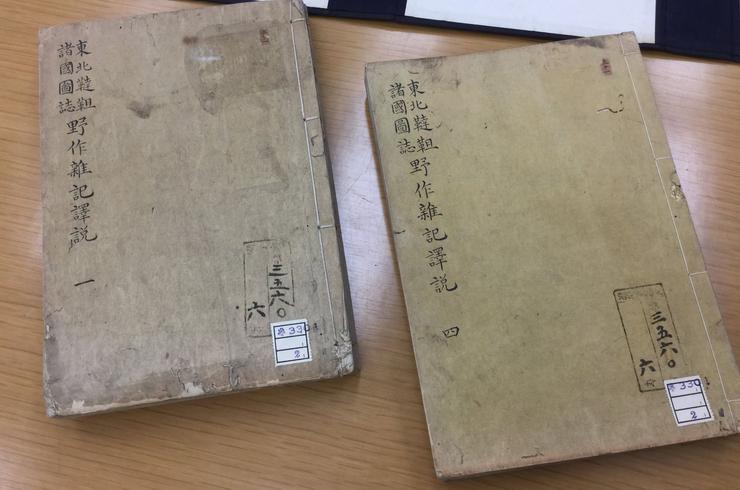 東北韃靼
諸國圖誌
野作雜記譯説 一
三五六〇
六
330
2
東北韃靼
諸國圖誌
野作雜記譯説 四
三五六〇
六
330
2